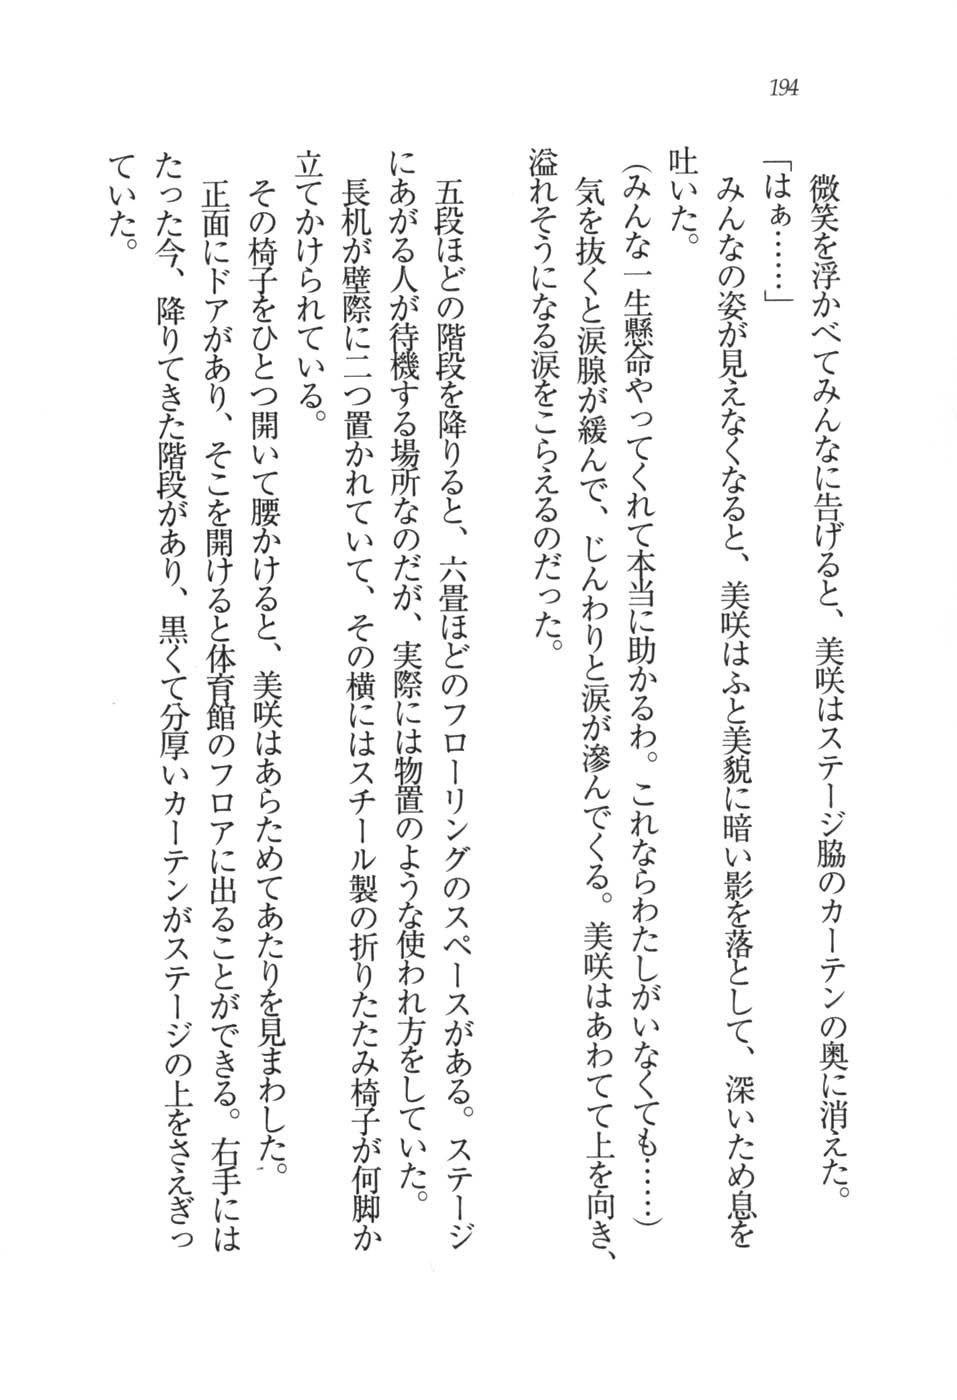 194
微笑を浮かべてみんなに告げると、美咲はステージ脇のカーテンの奥に消えた。
「はぁ……」
みんなの姿が見えなくなると、美咲はふと美貌に暗い影を落として、深いため息を
吐いた。
（みんな一生懸命やってくれて本当に助かるわ。これならわたしがいなくても……）
気を抜くと涙腺が緩んで、じんわりと涙が滲んでくる。美咲はあわてて上を向き、
溢れそうになる涙をこらえるのだった。
五段ほどの階段を降りると、六畳ほどのフローリングのスペースがある。ステージ
にあがる人が待機する場所なのだが、実際には物置のような使われ方をしていた。
長机が壁際に二つ置かれていて、その横にはスチール製の折りたたみ椅子が何脚か
立てかけられている。
その椅子をひとつ開いて腰かけると、美咲はあらためてあたりを見まわした。
正面にドアがあり、そこを開けると体育館のフロアに出ることができる。右手には
たった今、降りてきた階段があり、黒くて分厚いカーテンがステージの上をさえぎっ
ていた。